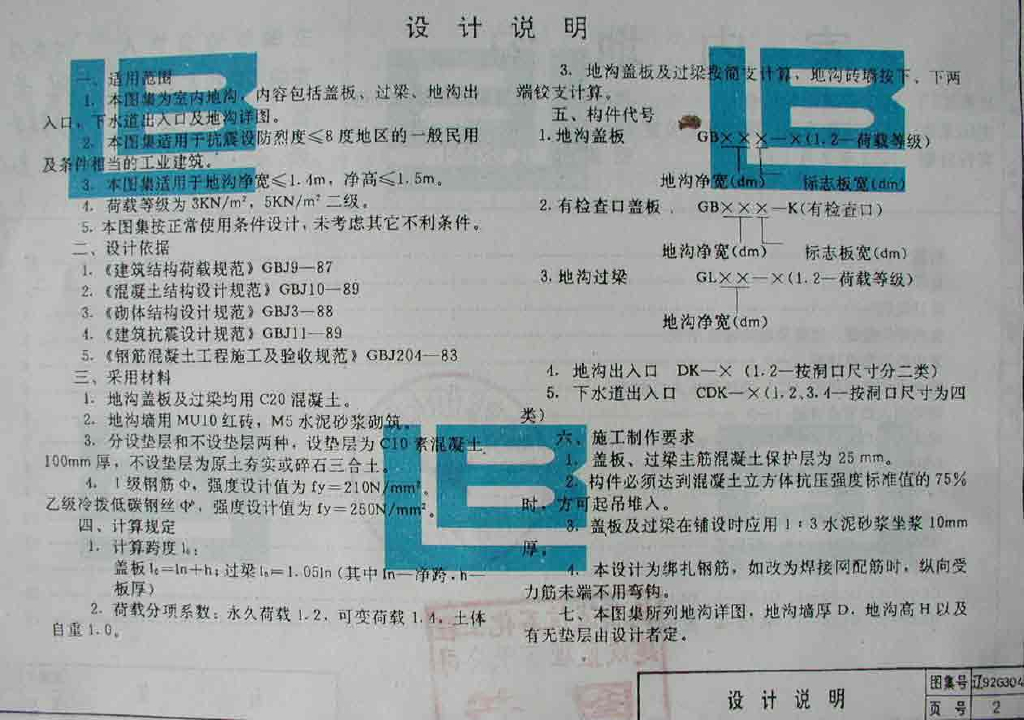 设计说明
一、适用范围
1. 本图集为室内地沟，内容包括盖板、过梁、地沟出
入口，下水道出入口及地沟详图。
2. 本图集适用于抗震设防烈度≤8度地区的一般民用
及条件相当的工业建筑。
3. 本图集适用于地沟净宽≤1.4m，净高≤1.5m。
4. 荷载等级为 3KN/m²，5KN/m² 二级。
5. 本图集按正常使用条件设计，未考虑其它不利条件。
二、设计依据
1.《建筑结构荷载规范》GBJ9—87
2.《混凝土结构设计规范》GBJ10—89
3.《砌体结构设计规范》GBJ3—88
4.《建筑抗震设计规范》GBJ11—89
5.《钢筋混凝土工程施工及验收规范》GBJ204—83
三、采用材料
1. 地沟盖板及过梁均用 C20 混凝土。
2. 地沟墙用 MU10 红砖，M5 水泥砂浆砌筑。
3. 分设垫层和不设垫层两种，设垫层为 C10 素混凝土
100mm 厚，不设垫层为原土夯实或碎石三合土。
4. I 级钢筋 Φ，强度设计值为 fy=210N/mm²
乙级冷拨低碳钢丝 Φᵇ，强度设计值为 fy=250N/mm²。
四、计算规定
1. 计算跨度 l₀：
盖板 l₀=ln+h；过梁 l₀=1.05ln (其中 ln—净跨，h—
板厚)
2. 荷载分项系数：永久荷载 1.2，可变荷载 1.4，土体
自重 1.0。
3. 地沟盖板及过梁按简支计算，地沟砖墙按下、下两
端铰支计算。
五、构件代号
1.地沟盖板 GB×××—×(1.2—荷载等级)
地沟净宽(dm) 标志板宽(dm)
2.有检查口盖板 GB×××—K(有检查口)
地沟净宽(dm) 标志板宽(dm)
3.地沟过梁 GL××—×(1.2—荷载等级)
地沟净宽(dm)
4. 地沟出入口 DK—× (1.2—按洞口尺寸分二类)
5. 下水道出入口 CDK—×(1.2.3.4—按洞口尺寸为四
类)
六、施工制作要求
1. 盖板、过梁主筋混凝土保护层为 25 mm。
2. 构件必须达到混凝土立方体抗压强度标准值的 75%
时，方可起吊堆入。
3. 盖板及过梁在铺设时应用 1：3 水泥砂浆坐浆 10mm
厚。
4. 本设计为绑扎钢筋，如改为焊接网配筋时，纵向受
力筋末端不用弯钩。
七、本图集所列地沟详图，地沟墙厚 D，地沟高 H 以及
有无垫层由设计者定。
设计说明
图集号 辽92G304
页号 2